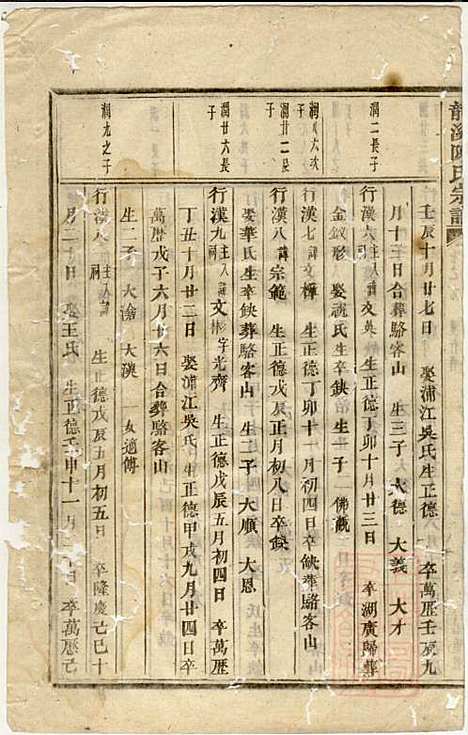 龍溪陳氏宗譜
壬辰十月廿七日 娶浦江吳氏生正德 卒萬歷壬辰九
月十三日合葬駱客山 生三子 大德 大義 大才
潤二長子
行漢六 主入祠 諱文英 生正德丁卯十月廿三日 卒湖廣歸葬
金釵形 娶祝氏生卒缺 生一子 佛藏
潤八六次子
行漢七 諱文樺 生正德丁卯十一月初四日卒缺葬駱客山
潤廿二長子
行漢八 諱宗範 生正德戊辰正月初八日卒缺
娶華氏生卒缺葬駱客山 生二子 大順 大恩
潤廿六長子
行漢九 主入祠 諱文彬字光齊 生正德戊辰五月初四日 卒萬歷
丁丑十月廿二日 娶浦江吳氏 生正德甲戌九月廿四日卒
萬歷戊子六月廿六日合葬駱客山
生二子 大滄 大漢 一女適傅
潤九之子
行漢八 主入祠 諱 生正德戊辰五月初五日 卒隆慶己巳十
月二十日 娶王氏 生正德壬申十一月二十日 卒萬歷己